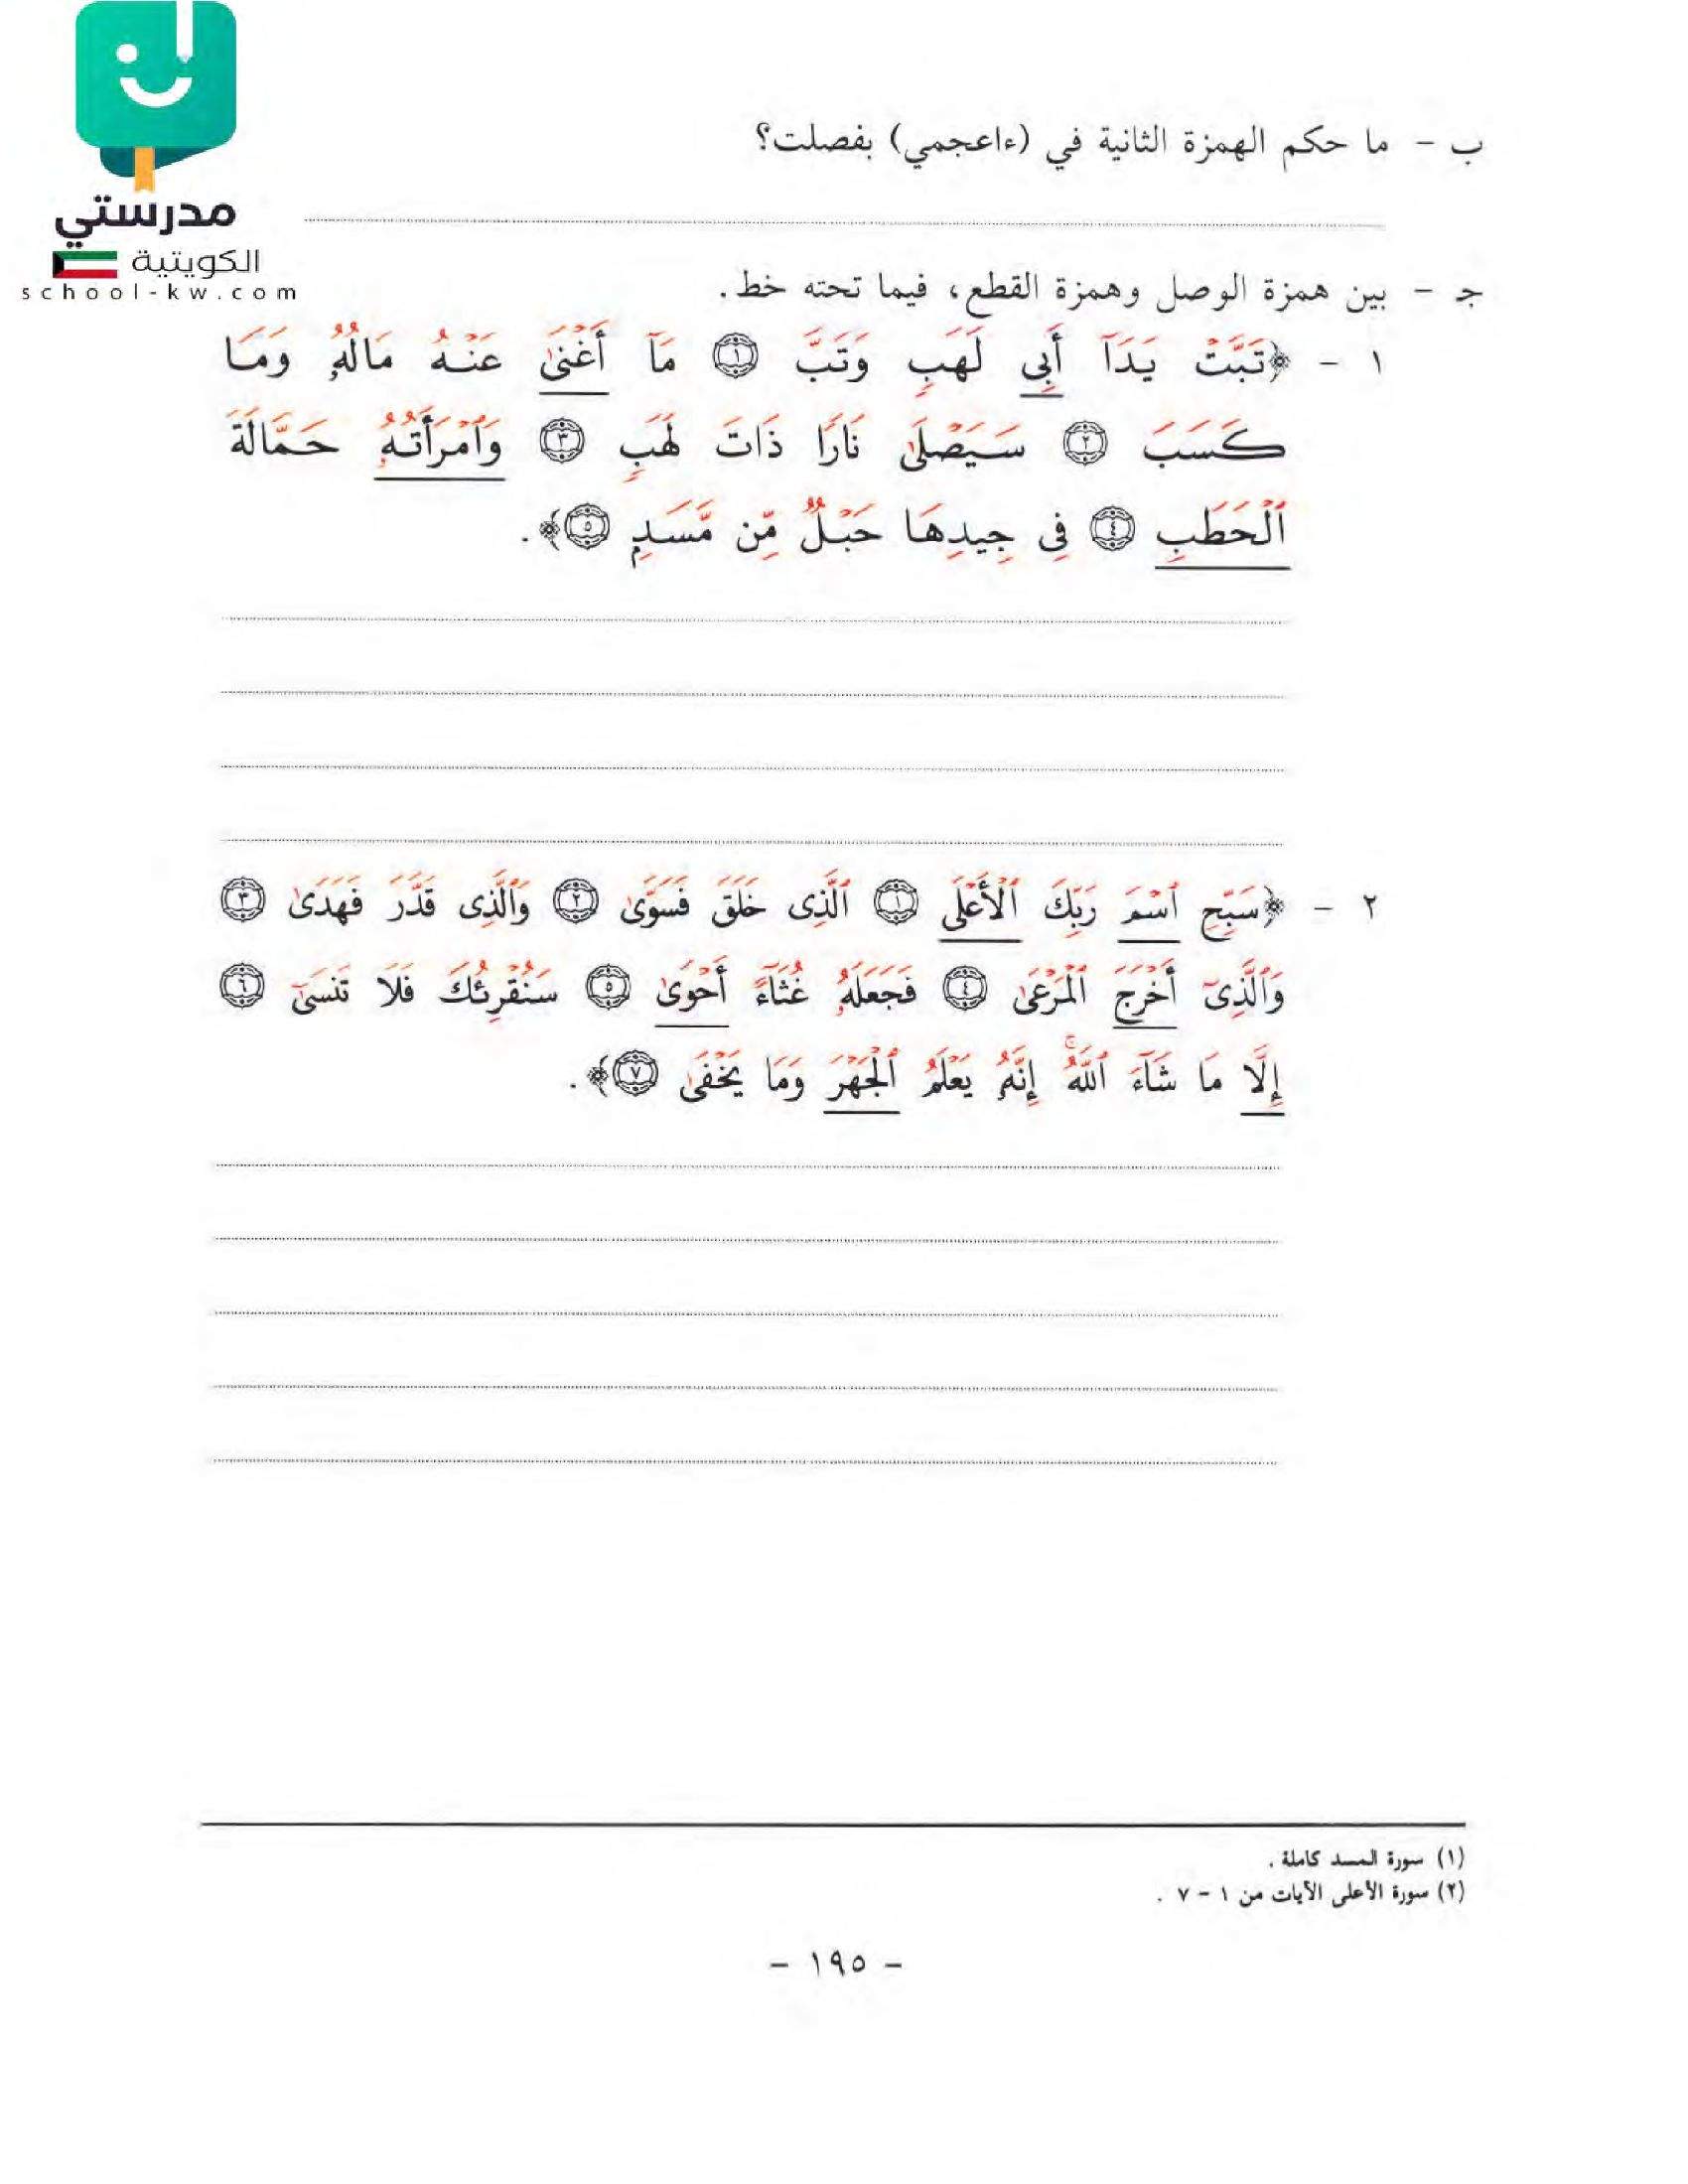 مدرستي
الكويتية
school-kw.com
ب - ما حكم الهمزة الثانية في (ءاعجمي) بفصلت؟
جـ - بين همزة الوصل وهمزة القطع، فيما تحته خط.
١ - ﴿تَبَّتْ يَدَآ أَبِي لَهَبٍ وَتَبَّ ١ مَآ أَغْنَىٰ عَنْهُ مَالُهُۥ وَمَا
كَسَبَ ٢ سَيَصْلَىٰ نَارًا ذَاتَ لَهَبٍ ٣ وَٱمْرَأَتُهُۥ حَمَّالَةَ
ٱلْحَطَبِ ٤ فِى جِيدِهَا حَبْلٌ مِّن مَّسَدٍۭ ٥﴾.
٢ - ﴿سَبِّحِ ٱسْمَ رَبِّكَ ٱلْأَعْلَى ١ ٱلَّذِى خَلَقَ فَسَوَّىٰ ٢ وَٱلَّذِى قَدَّرَ فَهَدَىٰ ٣
وَٱلَّذِىٓ أَخْرَجَ ٱلْمَرْعَىٰ ٤ فَجَعَلَهُۥ غُثَآءً أَحْوَىٰ ٥ سَنُقْرِئُكَ فَلَا تَنسَىٰٓ ٦
إِلَّا مَا شَآءَ ٱللَّهُۚ إِنَّهُۥ يَعْلَمُ ٱلْجَهْرَ وَمَا يَخْفَىٰ ٧﴾.
(١) سورة المسد كاملة.
(٢) سورة الأعلى الآيات من ١ - ٧.
- ١٩٥ -